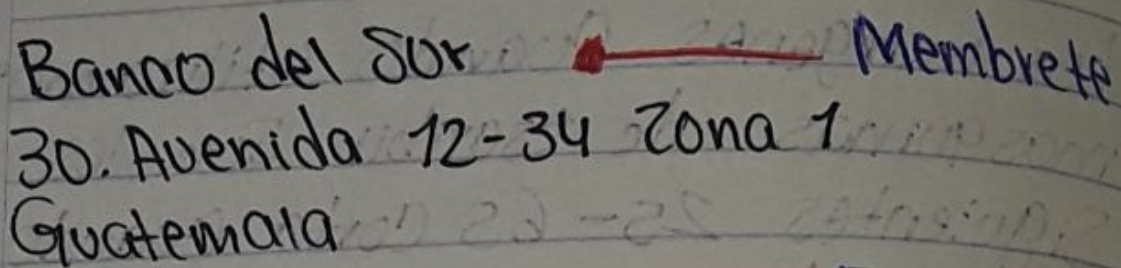 Banco del Sur Membrete
30. Avenida 12-34 Zona 1
Guatemala